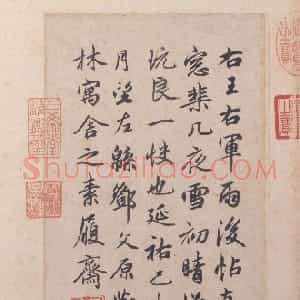 右王右軍雨後帖
窓棐几夜雪初晴
玩良一快也延祐己
月望左緜鄧文原
林寓舍之素履齋
Shufaziliao.com